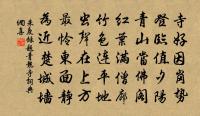 寺好因崗勢
登臨值夕陽
青山當佛閣
紅葉滿僧廊
竹色連平地
蟲聲在上方
最憐東面靜
爲近楚城牆
朱慶餘題青龍寺詞典
網書